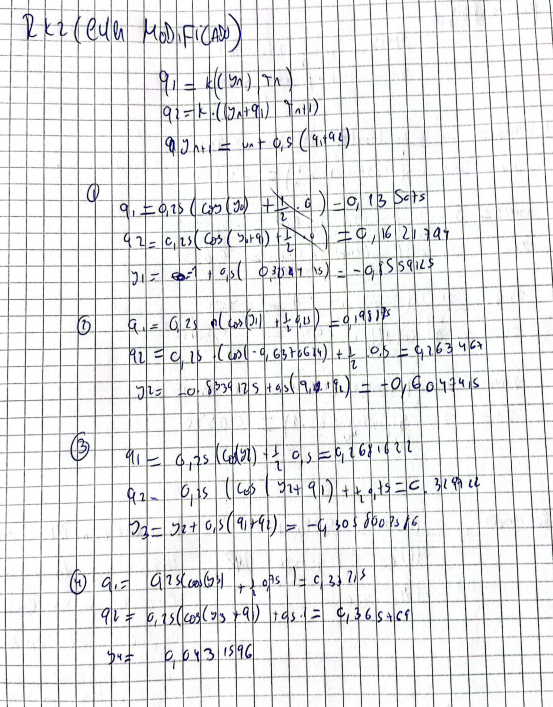 RK2 (Euler MODIFICADO)
q1 = k((yn), Tn)
q2 = k·((yn+q1) Tn+1)
yn+1 = un + 0,5 (q1+q2)
①
q1 = 0,25 (cos(y0) + 1/2 · 0) = 0,13
q2 = 0,25 (cos(y0+q1) + 1/2 · 0) = 0,1621794
y1 = + 0,5( ) = -0,8559125
②
q1 = 0,25 (cos(y1) + 1/2 0,25) = 0,19
q2 = 0,25 (cos(-0,6370624) + 1/2 0,5 = 0,263467
y2 = -0.8559125 + 0,5(q1+q2) = -0,6047415
③
q1 = 0,25 (cos(y2) + 1/2 0,5 = 0,2681622
q2 = 0,25 (cos (y2+q1) + 1/2 0,75 = 0,329722
y3 = y2 + 0,5(q1+q2) = -0,305
④ q1 = 0,25(cos(y3) + 1/2 0,75) = 0,3
q2 = 0,25(cos(y3+q1) + 0,5 ) = 0,365
y4 = 0,0431596